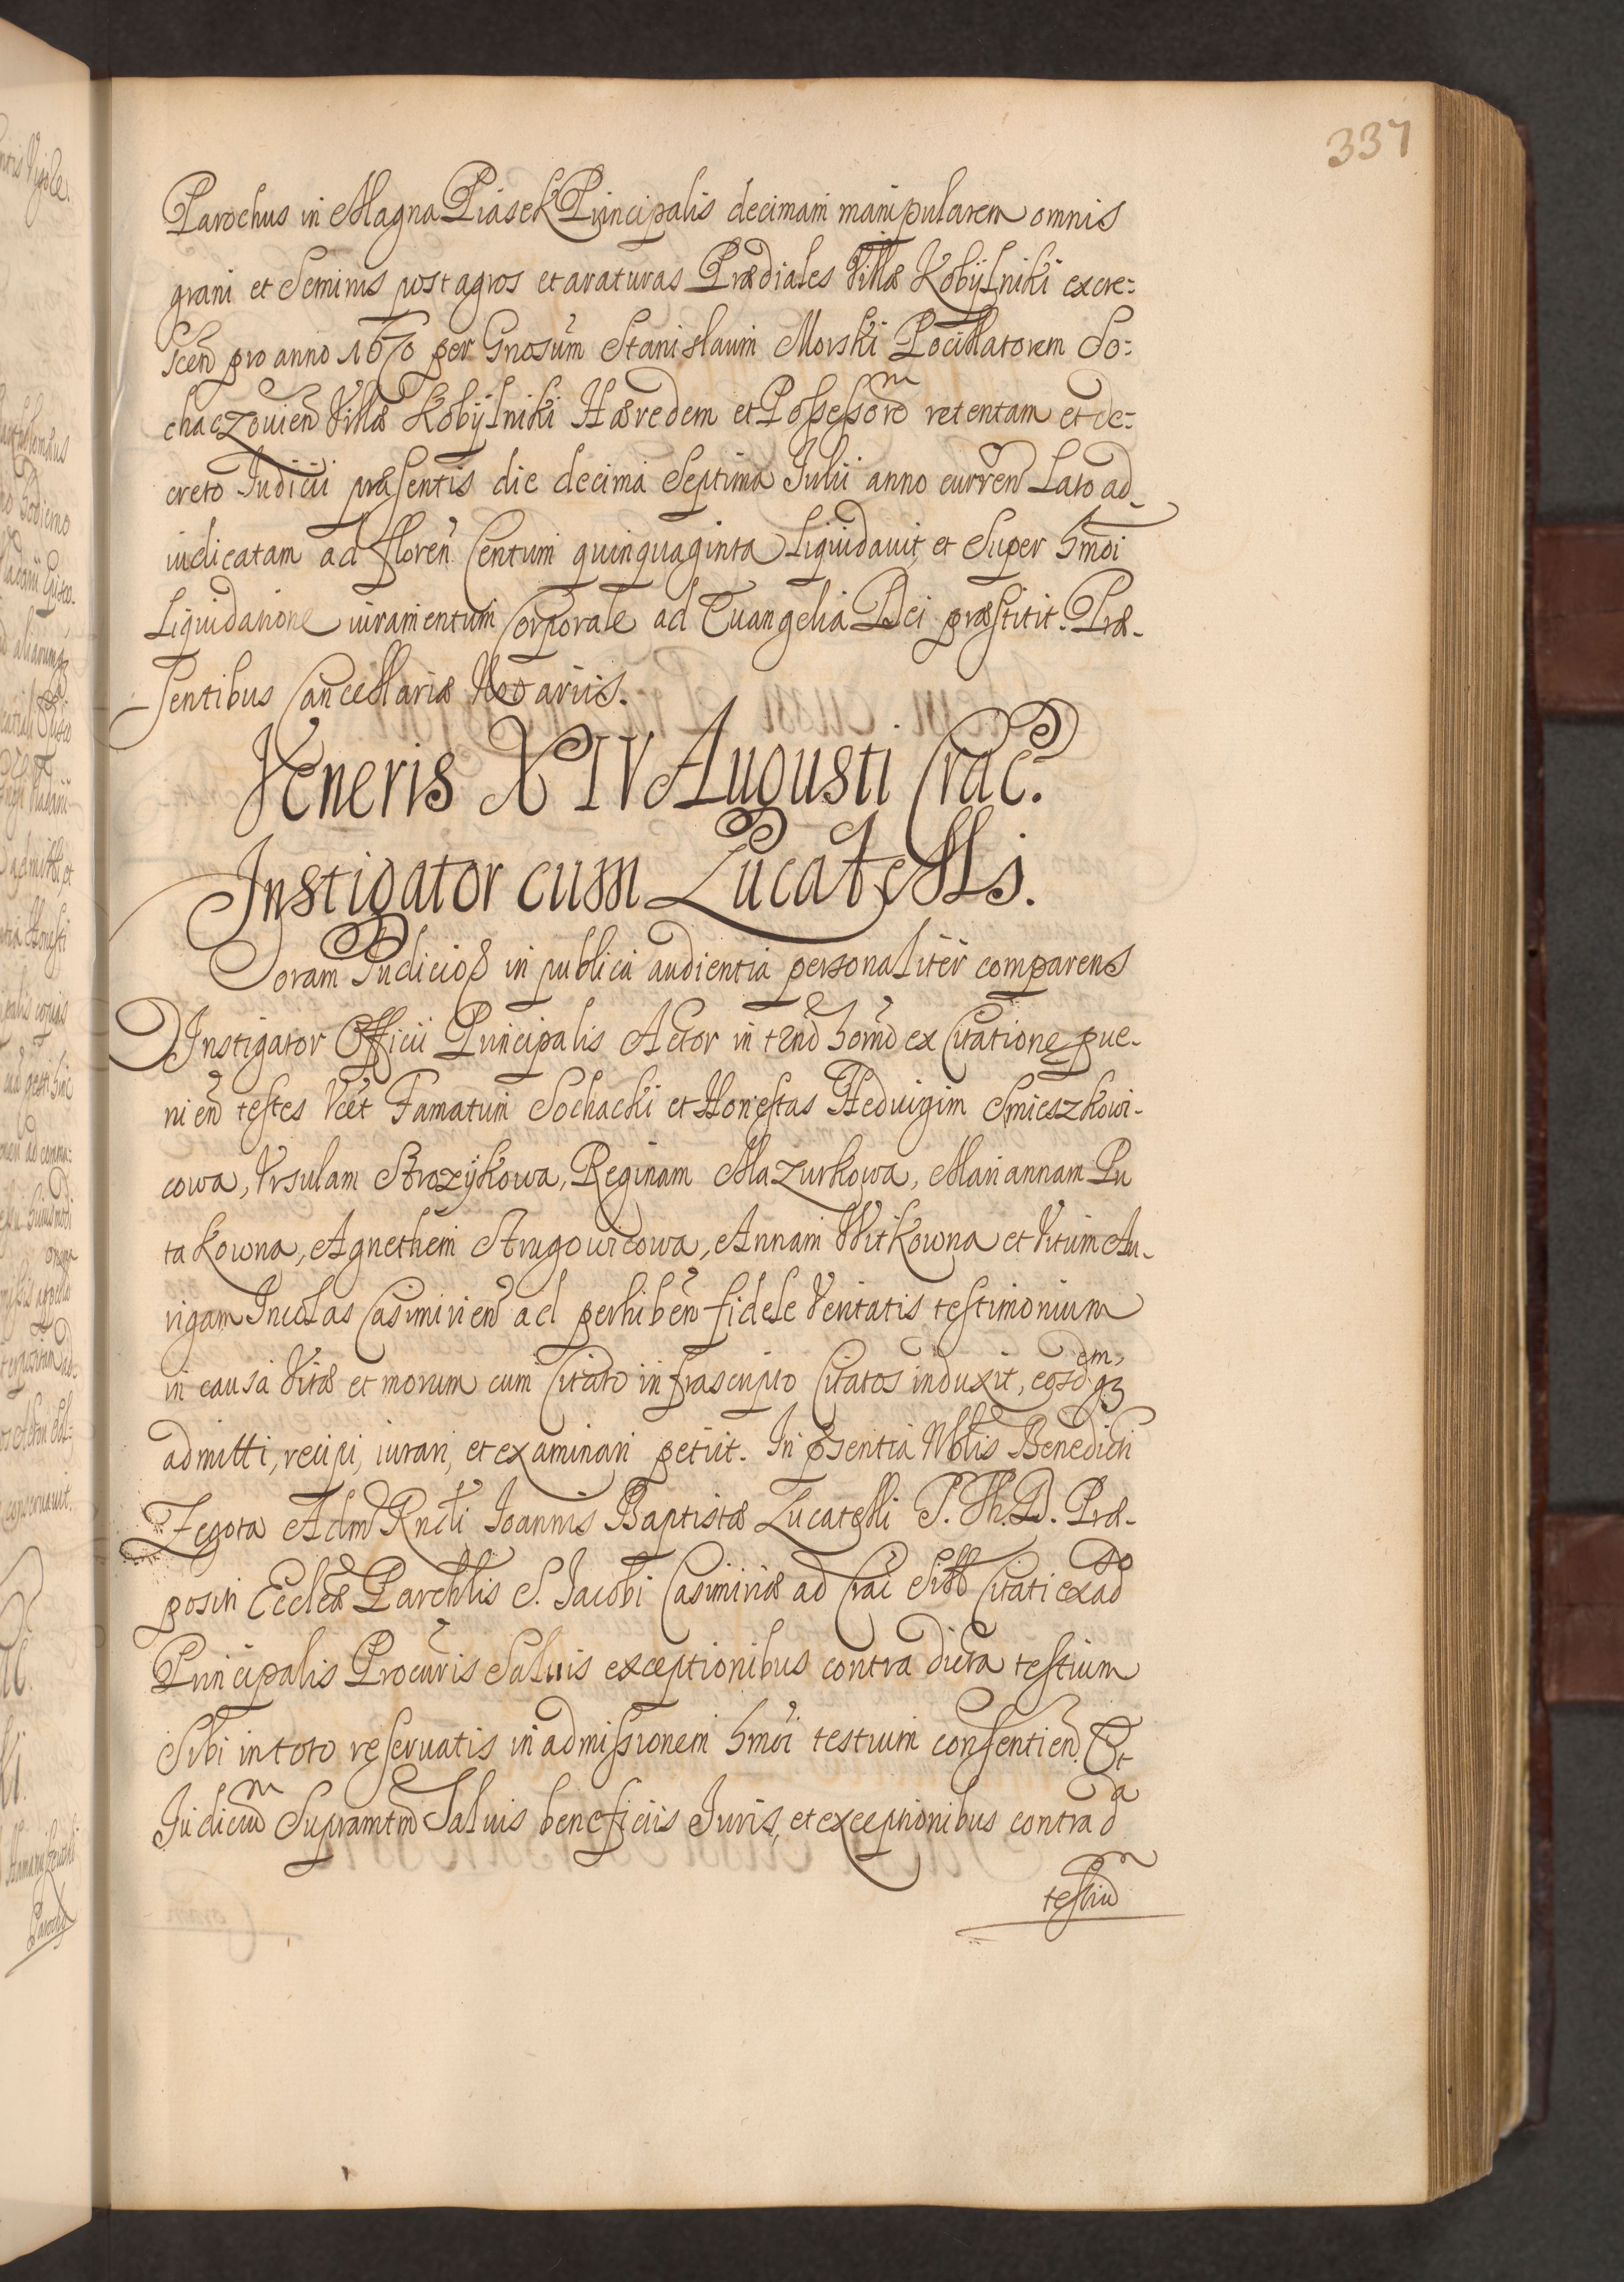 337
Parochus in Magna Piasek Principalis decimam manipularem omnis
grani et Seminis post agros et araturas Prædiales Villæ Kobÿlniki excre:
scen̄ pro anno 1670 per Gnosum Stanislaum Morski Pocillatorem So:
chaczouien̄ Villæ Kobÿlniki Hæredem et Possessorem retentam et de:
creto Iudicii præsentis die decima Septima Iulii anno curren̄ Lato ad-
iudicatam ad floren̄ Centum quinquaginta liquidauit, et Super hmōi
Liquidatione iuramentum Corporale ad Euangelia Dei præstitit. Præ-
sentibus Cancellariæ Notariis.
Veneris XIV Augusti Crac.
Instigator cum Lucatelli.
Coram Iudicio in publica audientia personaliter comparens
Instigator Officii Principalis Actor in ten̄d hom̄d ex Citatione pue-
nien̄ testes Vcet Famatum Sochacki et Honestas Hedvigim Smieszkowi-
cowa, Vrsulam Strozÿkowa, Reginam Mazurkowa, Mariannam Pu
takowna, Agnethem Strugowicowa, Annam Witkowna et Vitum Au-
rigam Incolas Casimirien̄ ad perhiben̄ fidele Veritatis testimonium
in causa Vitæ et morum cum Citato infrascripto Citatos induxit, eosdemq3
admitti, recipi, iurari, et examinari petiit. In pn̄sentia Nobilis Benedicti
Zegota Adm Rndi Ioannis Baptistæ Lucatelli S. Th. D. Præ-
positi Ecclæ Parchlis S. Iacobi Casimiriæ ad Crac̄ Sitæ Citati ex adso
Principalis Procuris Saluis exceptionibus contra dicta testium
Sibi in toto reseruatis in admissionem hmōi testium consentien̄. Et
Iudicium Supramtm Saluis beneficiis Iuris, et exceptionibus contra da
testium